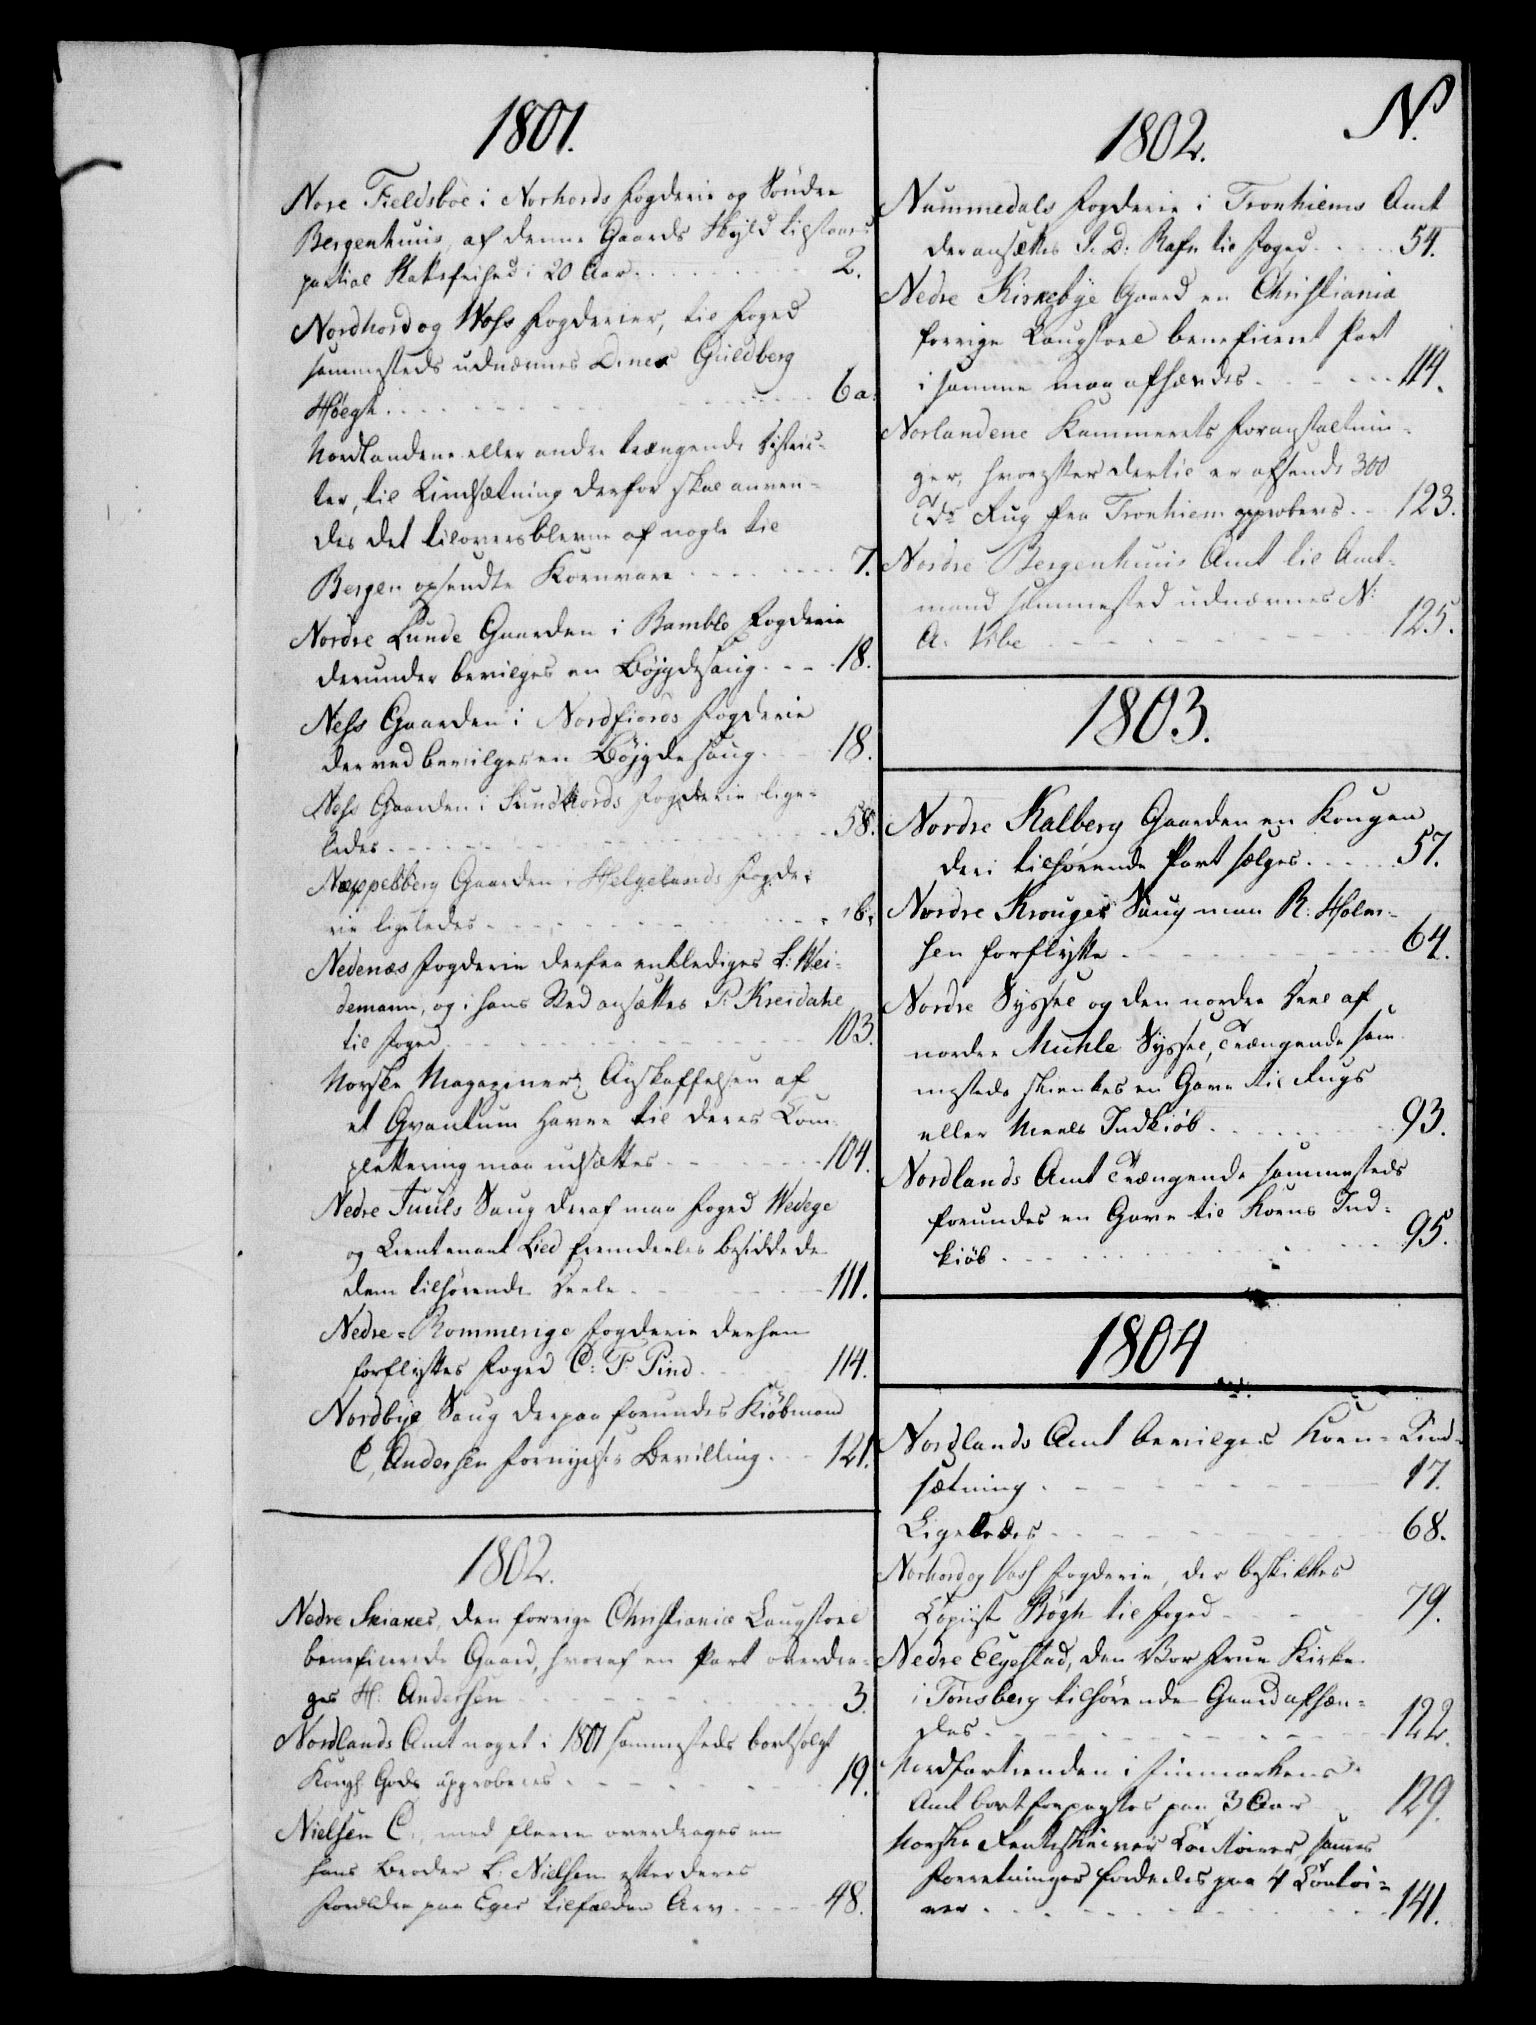 1801.
Nore Fieldsboe i Norhords Fogderie og Söndre
Bergenhuus, af denne Gaards Skyld tilstaaes
partial Skatefrihed i 20 Aar. 2.
Nordhord og Woss Fogderier, til Foged
sammesteds udnævnes Dines Guldberg
Høegh 6a.
Nordlandene eller andre trængende Distric-
ter, til Undsætning derfor skal anven-
des det tiloversblevne af nogle til
Bergen opsendte Kornvare 7.
Nordre Lunde Gaarden i Bamble Fogderie
derunder bevilges en Böjgdesaug 18.
Ness Gaarden i Nordfiords Fogderie
derved bevilges en Böjgdesaug 18.
Ness Gaarden i Sundhords Fogderie lige-
ledes 58.
Næppelberg Gaarden i Helgelands Fogde-
rie ligeledes
Nedenæs Fogderie derfra entlediges L: Wei-
demann, og i hans Sted ansættes P. Kreidahl
til Foged 103.
Norske Magaziner, Anskaffelsen af
et Qvantum Havre til deres Com-
plettering maa udsættes 104.
Nedre Juuls Saug deraf maa Foged Wedege
og Lieutenant Lied fremdeeles besidde de
dem tilhørende Deele 111.
Nedre-Rommerige Fogderie derhen
forflyttes Foged C: F. Pind 114.
Nordbye Saug derpaa forundes Kiöbmand
C, Andersen fornyet Bevilling 121.
1802.
Nedre Skianes, den forrige Christiania Laugstoel
beneficerede Gaard, hvoraf en Part overdra-
ges H. Andersen 3.
Nordlands Amt noget i 1801 sammesteds bortsolgt
Kongl. Gods approberes 19.
Nielsen C., med fleere overdrages en
hans Broder L: Nielsen efter deres
Forældre paa Eger tilfalden Arv 48.
N.
1802.
Nummedals Fogderie i Tronhiems Amt
der ansættes J. D: Rafn til Foged 54.
Nedre Kirkebye Gaard en Christiania
forrige Laugstoel beneficeret Part
i samme maa afhændes 114.
Norlandene Kammerets Foranstaltnin-
ger, hvorefter dertil er afsendt 300
Tdr Rug fra Tronhiem approberes 123.
Nordre Bergenhuus Amt til Amt-
mand sammested udnævnes N:
A. Vibe 125.
1803.
Nordre Kalberg Gaarden en Kongen
deri tilhørende Part sælges 57.
Nordre Krouges Saug maa R: Holm-
sen forflytte 64.
Nordre Syssel og den nordre Deel af
nordre Muhle Syssel, Trængende sam-
mesteds skienkes en Gave til Rugs
eller Meels Indkiöb 93.
Nordlands Amt Trængende sammesteds
forundes en Gave til Korns Ind-
kiöb 95.
1804
Nordlands Amt bevilges Korn-Und-
sætning 17.
Ligeledes 68.
Norhord og Voss Fogderie, der beskikkes
Copiist Bögh til Foged 79.
Nedre Elgestad, den Vor Frue Kirke
i Tönsberg tilhørende Gaard afhæn-
des 122.
Nordfartienden i Finmarkens
Amt bortforpagtes paa 3 Aar 129.
Norske Renteskriver Contoirer, sammes
Forretninger fordeeles paa 4 Contoi-
rer 141.